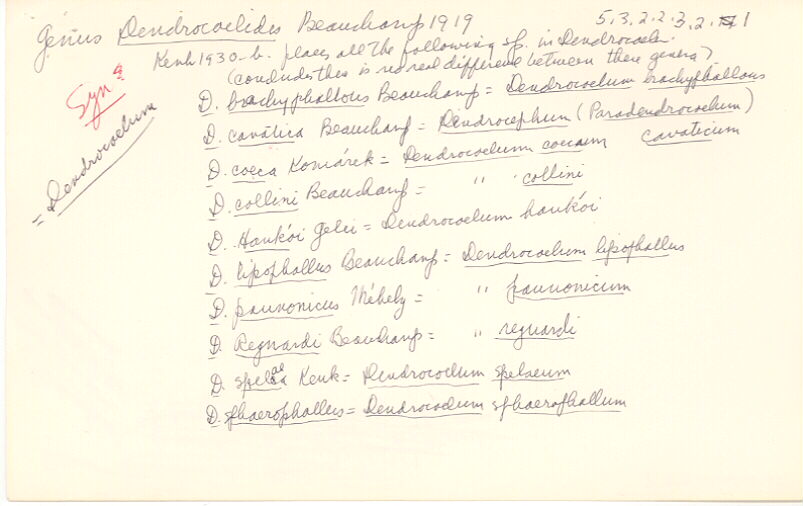 Genus Dendrocoelides Beauchamp 1919
5.3.2.2.3.2.1
Kenk 1930-b. places all the following sp. in Dendrocoelum.
(concludes there is no real difference between these genera)
Syn
= Dendrocoelum
D. brachyphallous Beauchamp = Dendrocoelum brachyphallous
D. cavatica Beauchamp = (Paradendrocoelum)
D. coeca Komárek = Dendrocoelum cavaticum
D. collini Beauchamp = " collini
D. Hankói Gelei = Dendrocoelum hankói
D. lipophallus Beauchamp = Dendrocoelum lipophallus
D. pannonicus Méhely = " pannonicum
D. Regnardi Beauchamp = " regnardi
D. spelaea Kenk = Dendrocoelum spelaeum
D. sphaerophallus = Dendrocoelum sphaerophallum